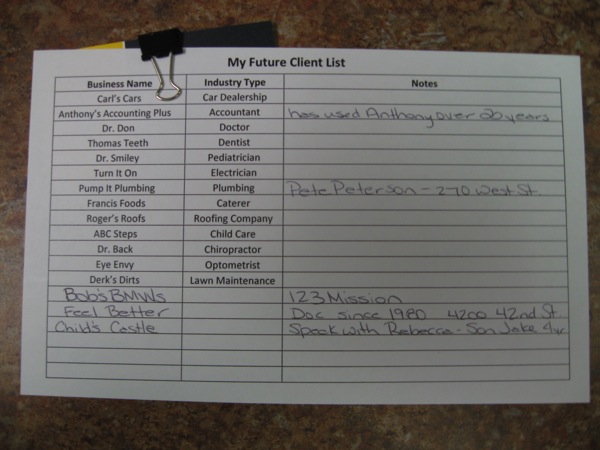 My Future Client List
Business Name Industry Type Notes
Carl's Cars Car Dealership
Anthony's Accounting Plus Accountant has used Anthony over 20 years
Dr. Don Doctor
Thomas Teeth Dentist
Dr. Smiley Pediatrician
Turn It On Electrician
Pump It Plumbing Plumbing Pete Peterson - 270 West St
Francis Foods Caterer
Roger's Roofs Roofing Company
ABC Steps Child Care
Dr. Back Chiropractor
Eye Envy Optometrist
Derk's Dirts Lawn Maintenance
Bob's BMWs 123 Mission
Feel Better Doc since 1980 4200 42nd St.
Child's Castle Speak with Rebecca - Son Jake 4yr.